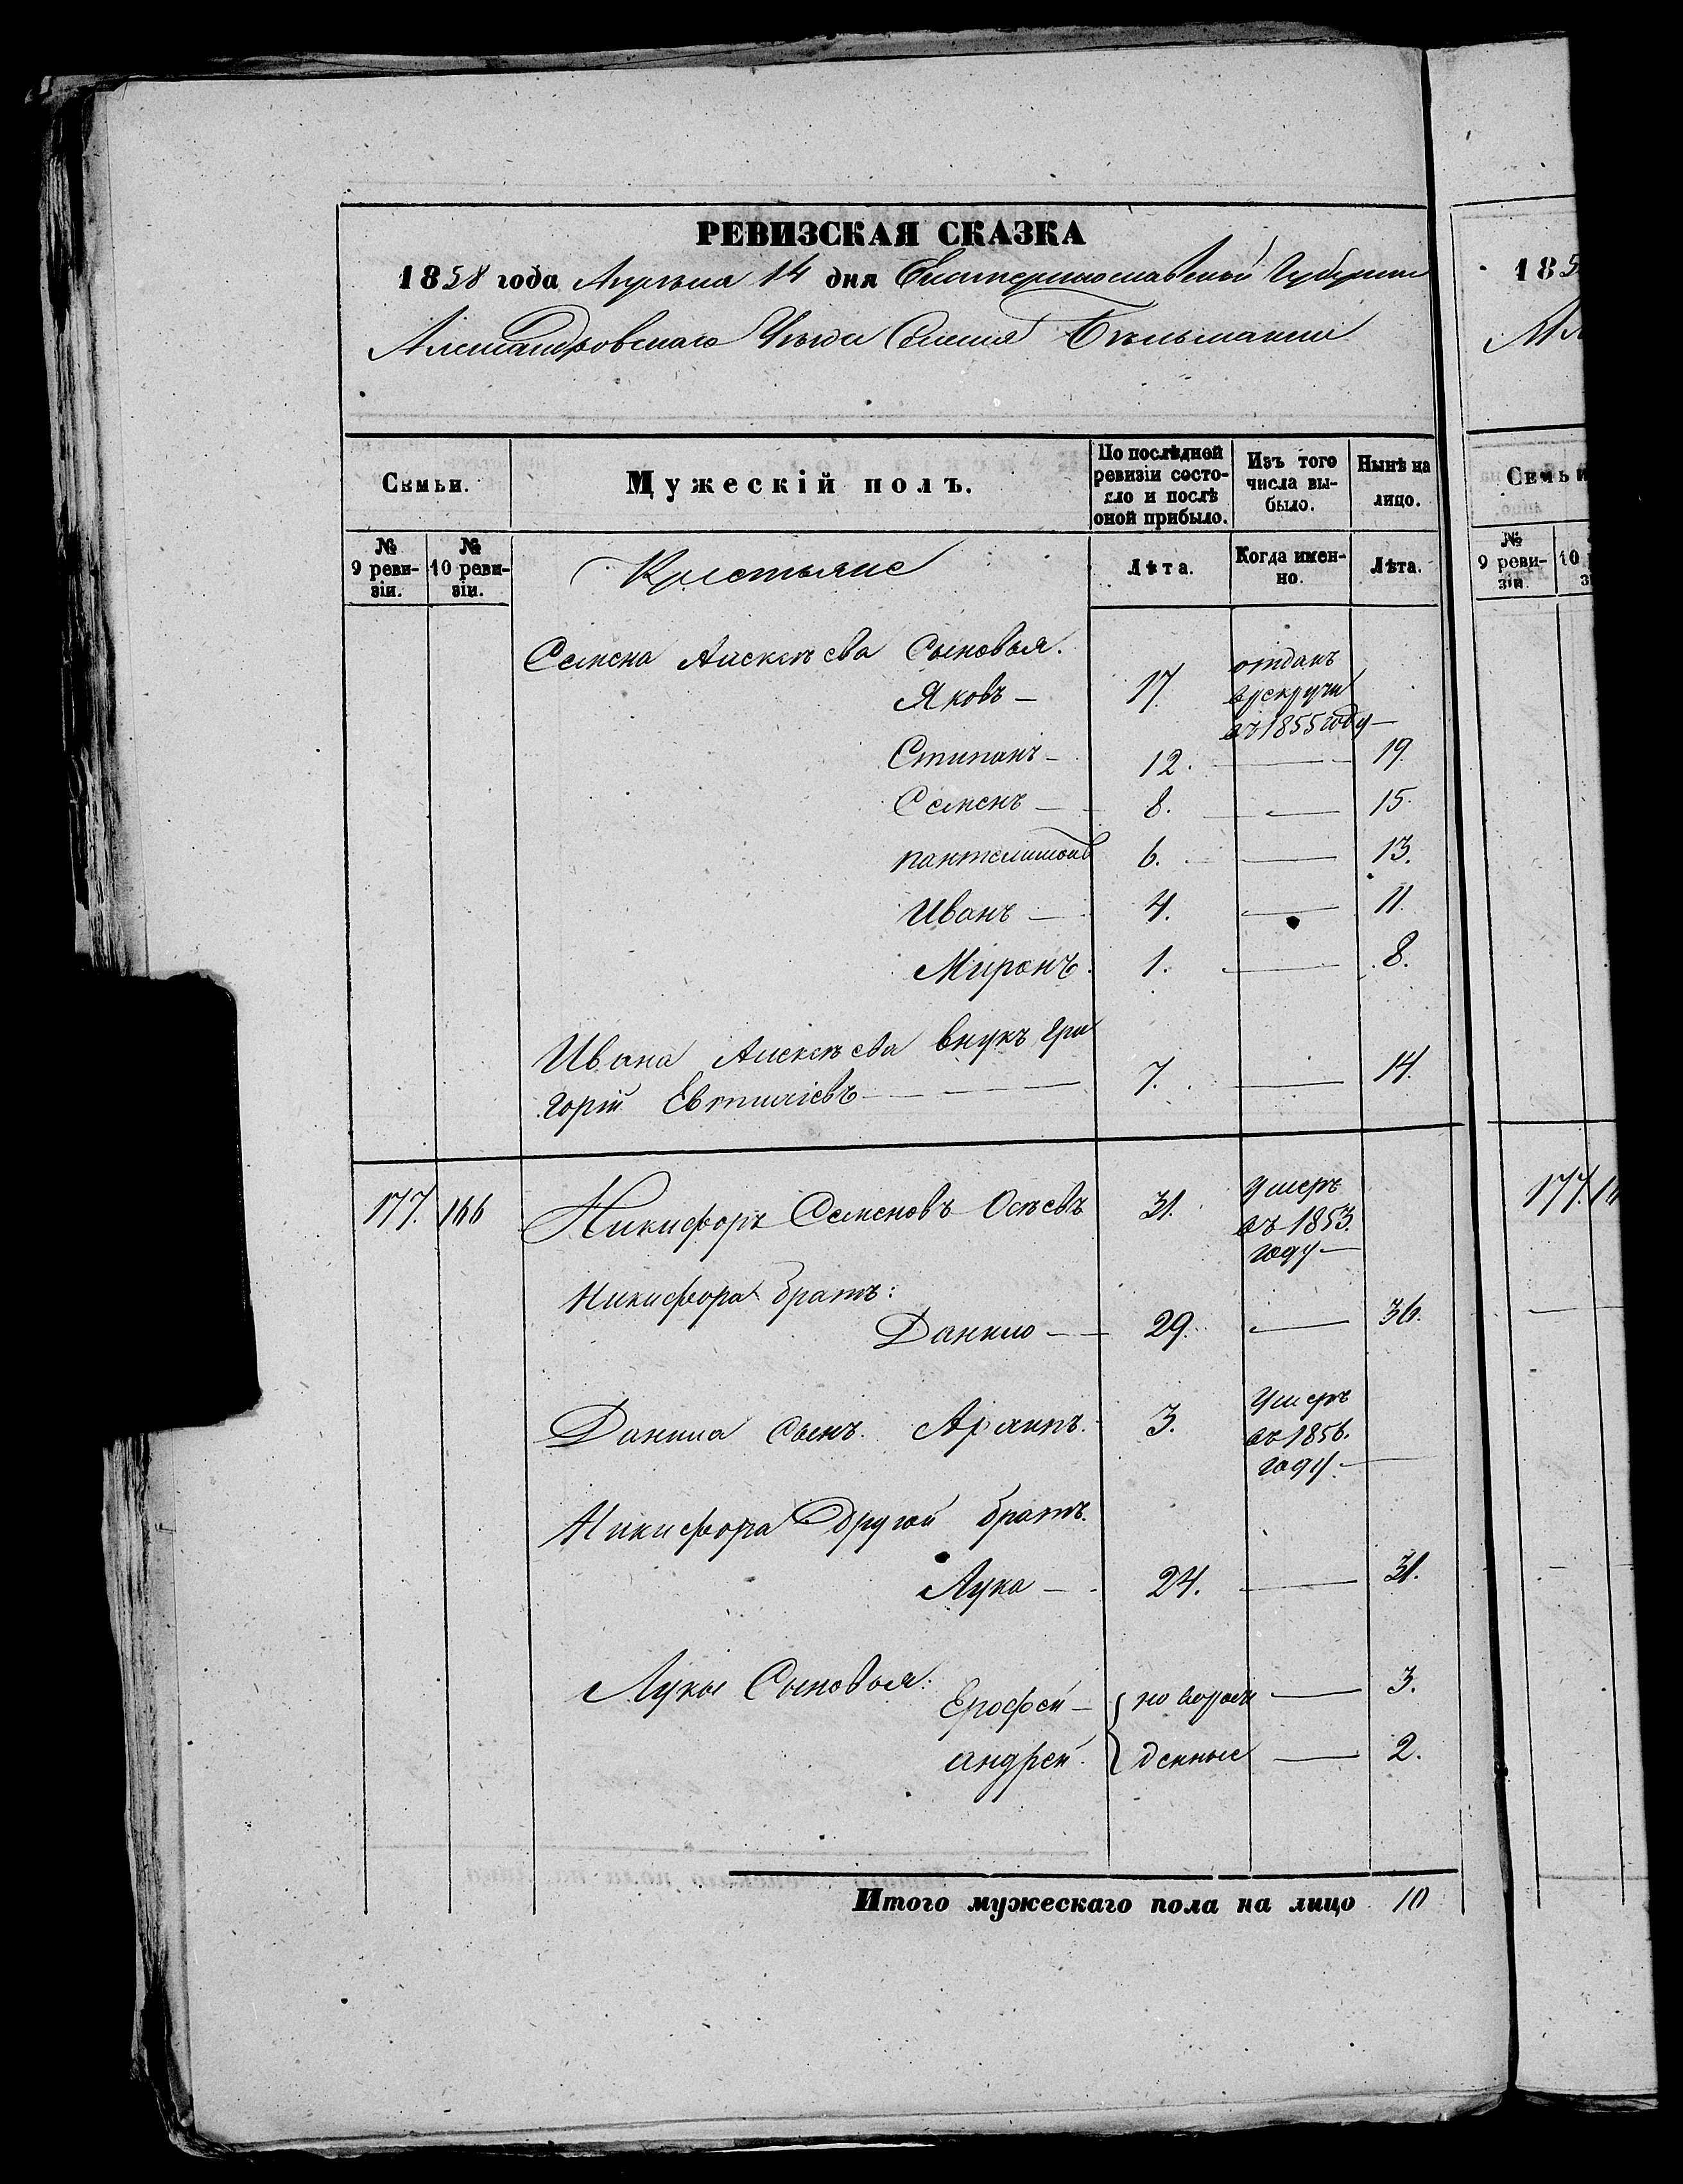 РЕВИЗСКАЯ СКАЗКА
1858 года Апреля 14 дня Екатеринославской Губернии
Александровскаго Уезда Селения Бельманки
185
Семьи.
Мужескій полъ.
По послѣдней ревизіи состояло и послѣ оной прибыло.
Изъ того числа выбыло.
Нынѣ на лицо.
Семьи
№ 9 ревизіи.
№ 10 ревизіи.
Крестьяне
Лѣта.
Когда именно.
Лѣта.
№ 9 ревизіи.
10
Семена Алексѣева Сыновья.
Яковъ — 17. отданъ
врекруты
въ 1855 году —
Стипанъ — 12. — 19.
Семенъ — 8. — 15.
пантелимонъ 6. — 13.
Иванъ — 4. — 11.
Миронъ. 1. — 8.
Ивана Алексѣева внукъ Гри
горій Евтихіевъ — 7. — 14.
177. 166 Никифоръ Семеновъ Осѣевъ 31. Умеръ
въ 1853.
году —
177.
Никифора братъ:
Данило — 29. — 36.
Данила сынъ. Архипъ. 3. Умеръ
въ 1856.
году. —
Никифора другой братъ.
Лука — 24. — 31.
Луки Сыновья:
Ерофей — новорож — 3.
андрей. денные — 2.
Итого мужескаго пола на лицо 10